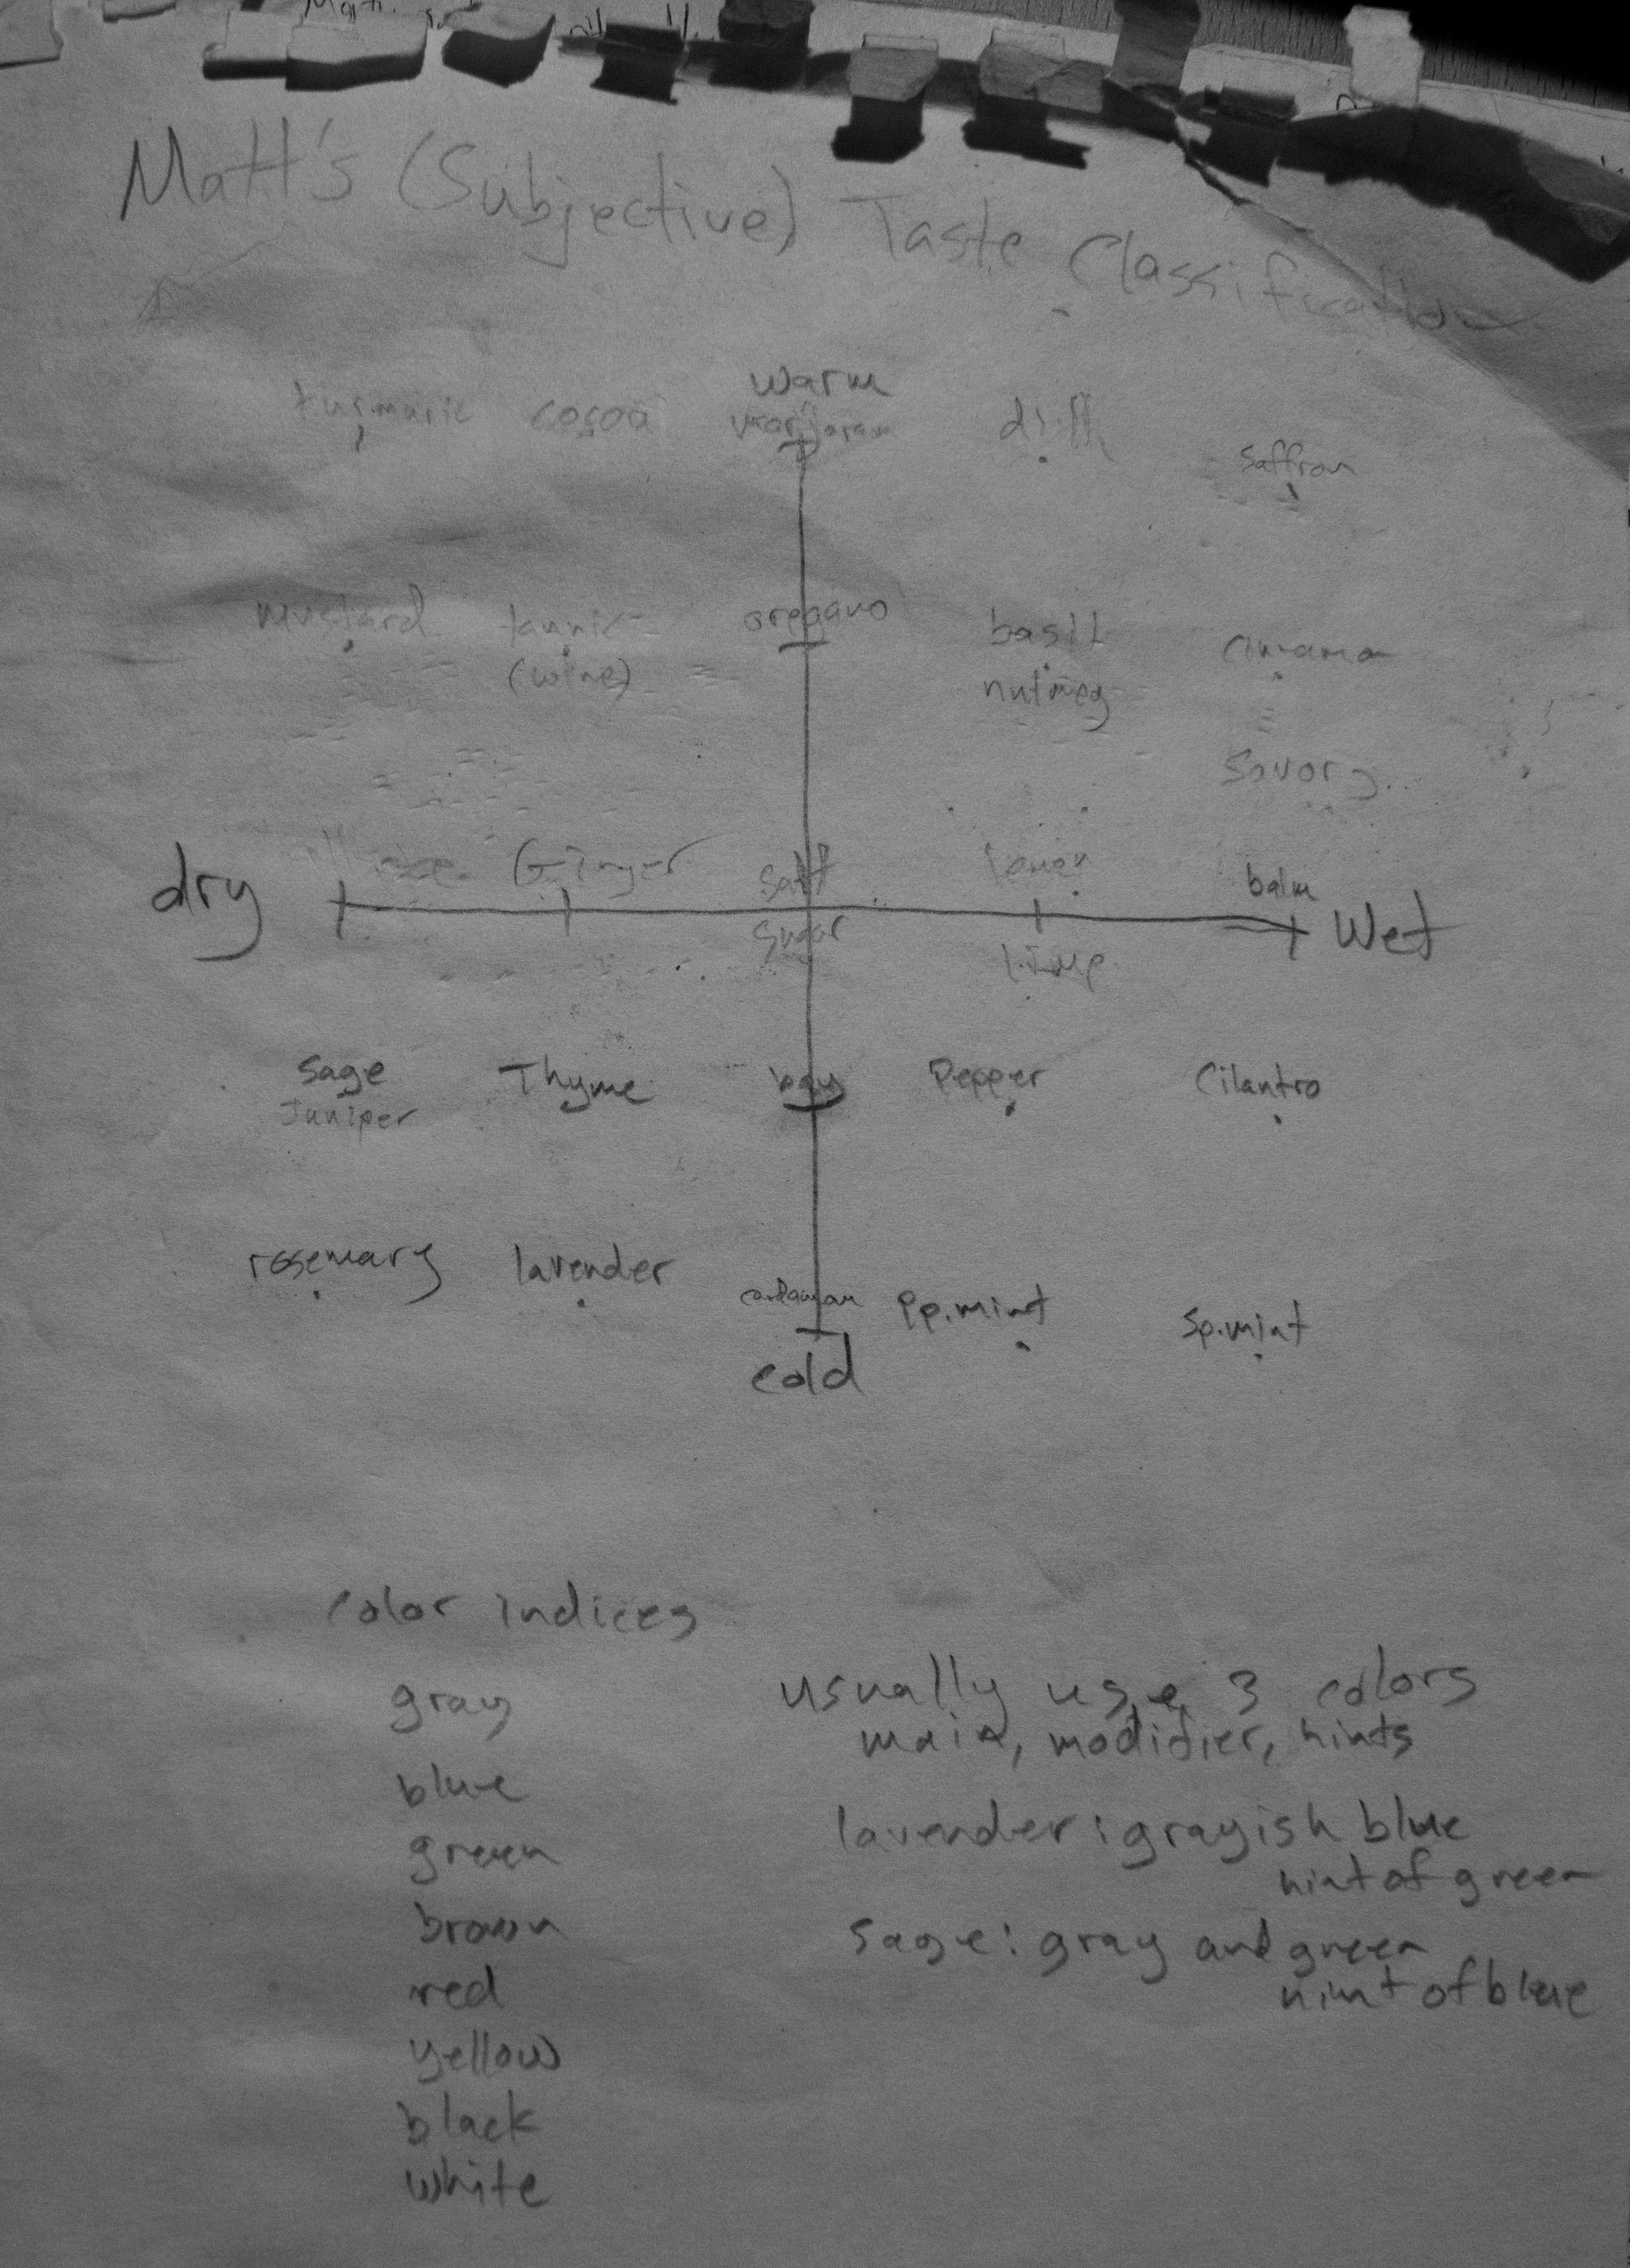 Matt's (Subjective) Taste Classification
warm
turmaric cocoa marjoram dill
saffron
mustard tannic oregano basil cinamon
(wine) nutmeg
savory
Ginger salt lemon balm
dry Wet
sugar lime
sage Thyme bay Pepper Cilantro
Juniper
rosemary lavender cardamom Pp.mint Sp.mint
cold
color indices
gray
blue
green
brown
red
yellow
black
white
usually use 3 colors
main, modifier, hints
lavender: grayish blue
hint of green
sage: gray and green
hint of blue